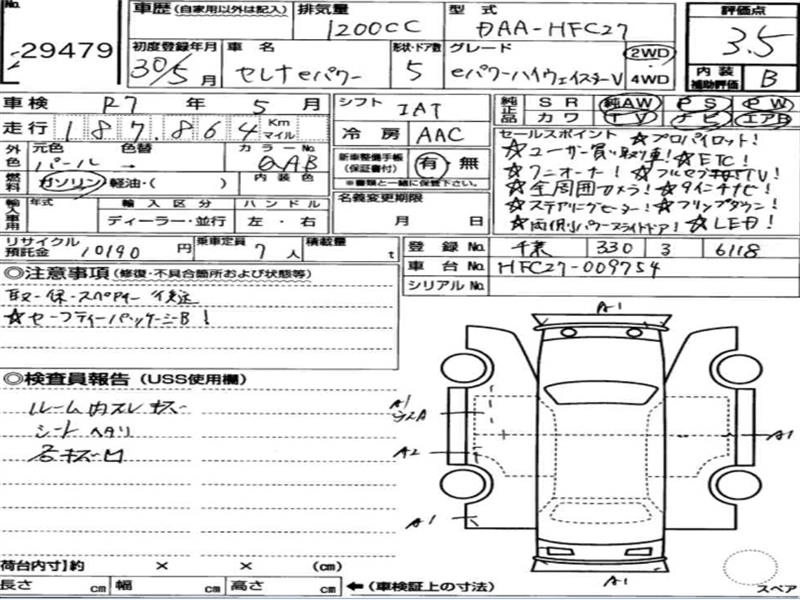 No. 29479
車歴(自家用以外は記入) 排気量 1200CC 型式 DAA-HFC27 評価点 3.5
初度登録年月 30/5月 車名 セレナeパワー 形状・ドア数 5 グレード eパワーハイウェイスターV 2WD 4WD 内装補助評価 B
車検 R7年 5月 シフト IAT 純正品 SR 純AW PS PW
走行 187,864 Km マイル 冷房 AAC カワ TV ナビ エアB
外色 元色 パール 色替 → カラーNo. QAB 新車整備手帳(保証書付) 有・無 ※書類と一緒に保管下さい。
燃料 ガソリン・軽油・( ) 内装色 名義変更期限 月 日
セールスポイント ☆プロパイロット!
☆ユーザー買い取り車!☆ETC!
☆ワンオーナー!☆フルセグTV!
☆全周囲カメラ!☆9インチナビ!
☆ステアリングヒーター!☆フリップダウン!
☆両側パワースライドドア!☆LED!
輸入車用 年式 輸入区分 ディーラー・並行 ハンドル 左・右
リサイクル預託金 10190円 乗車定員 7人 積載量 t
登録No. 千葉 330 3 6118
車台No. HFC27-009754
シリアルNo.
◎注意事項(修復・不具合箇所および状態等)
取・保・スペアキー 後送
☆セーフティーパッケージB!
◎検査員報告(USS使用欄)
ルーム内スレ キズ
シート ヘタリ
各キズ凹
A1
A1
A2
A1
A1
A1
荷台内寸)約 × × (cm)
長さ cm 幅 cm 高さ cm ←(車検証上の寸法)
スペア